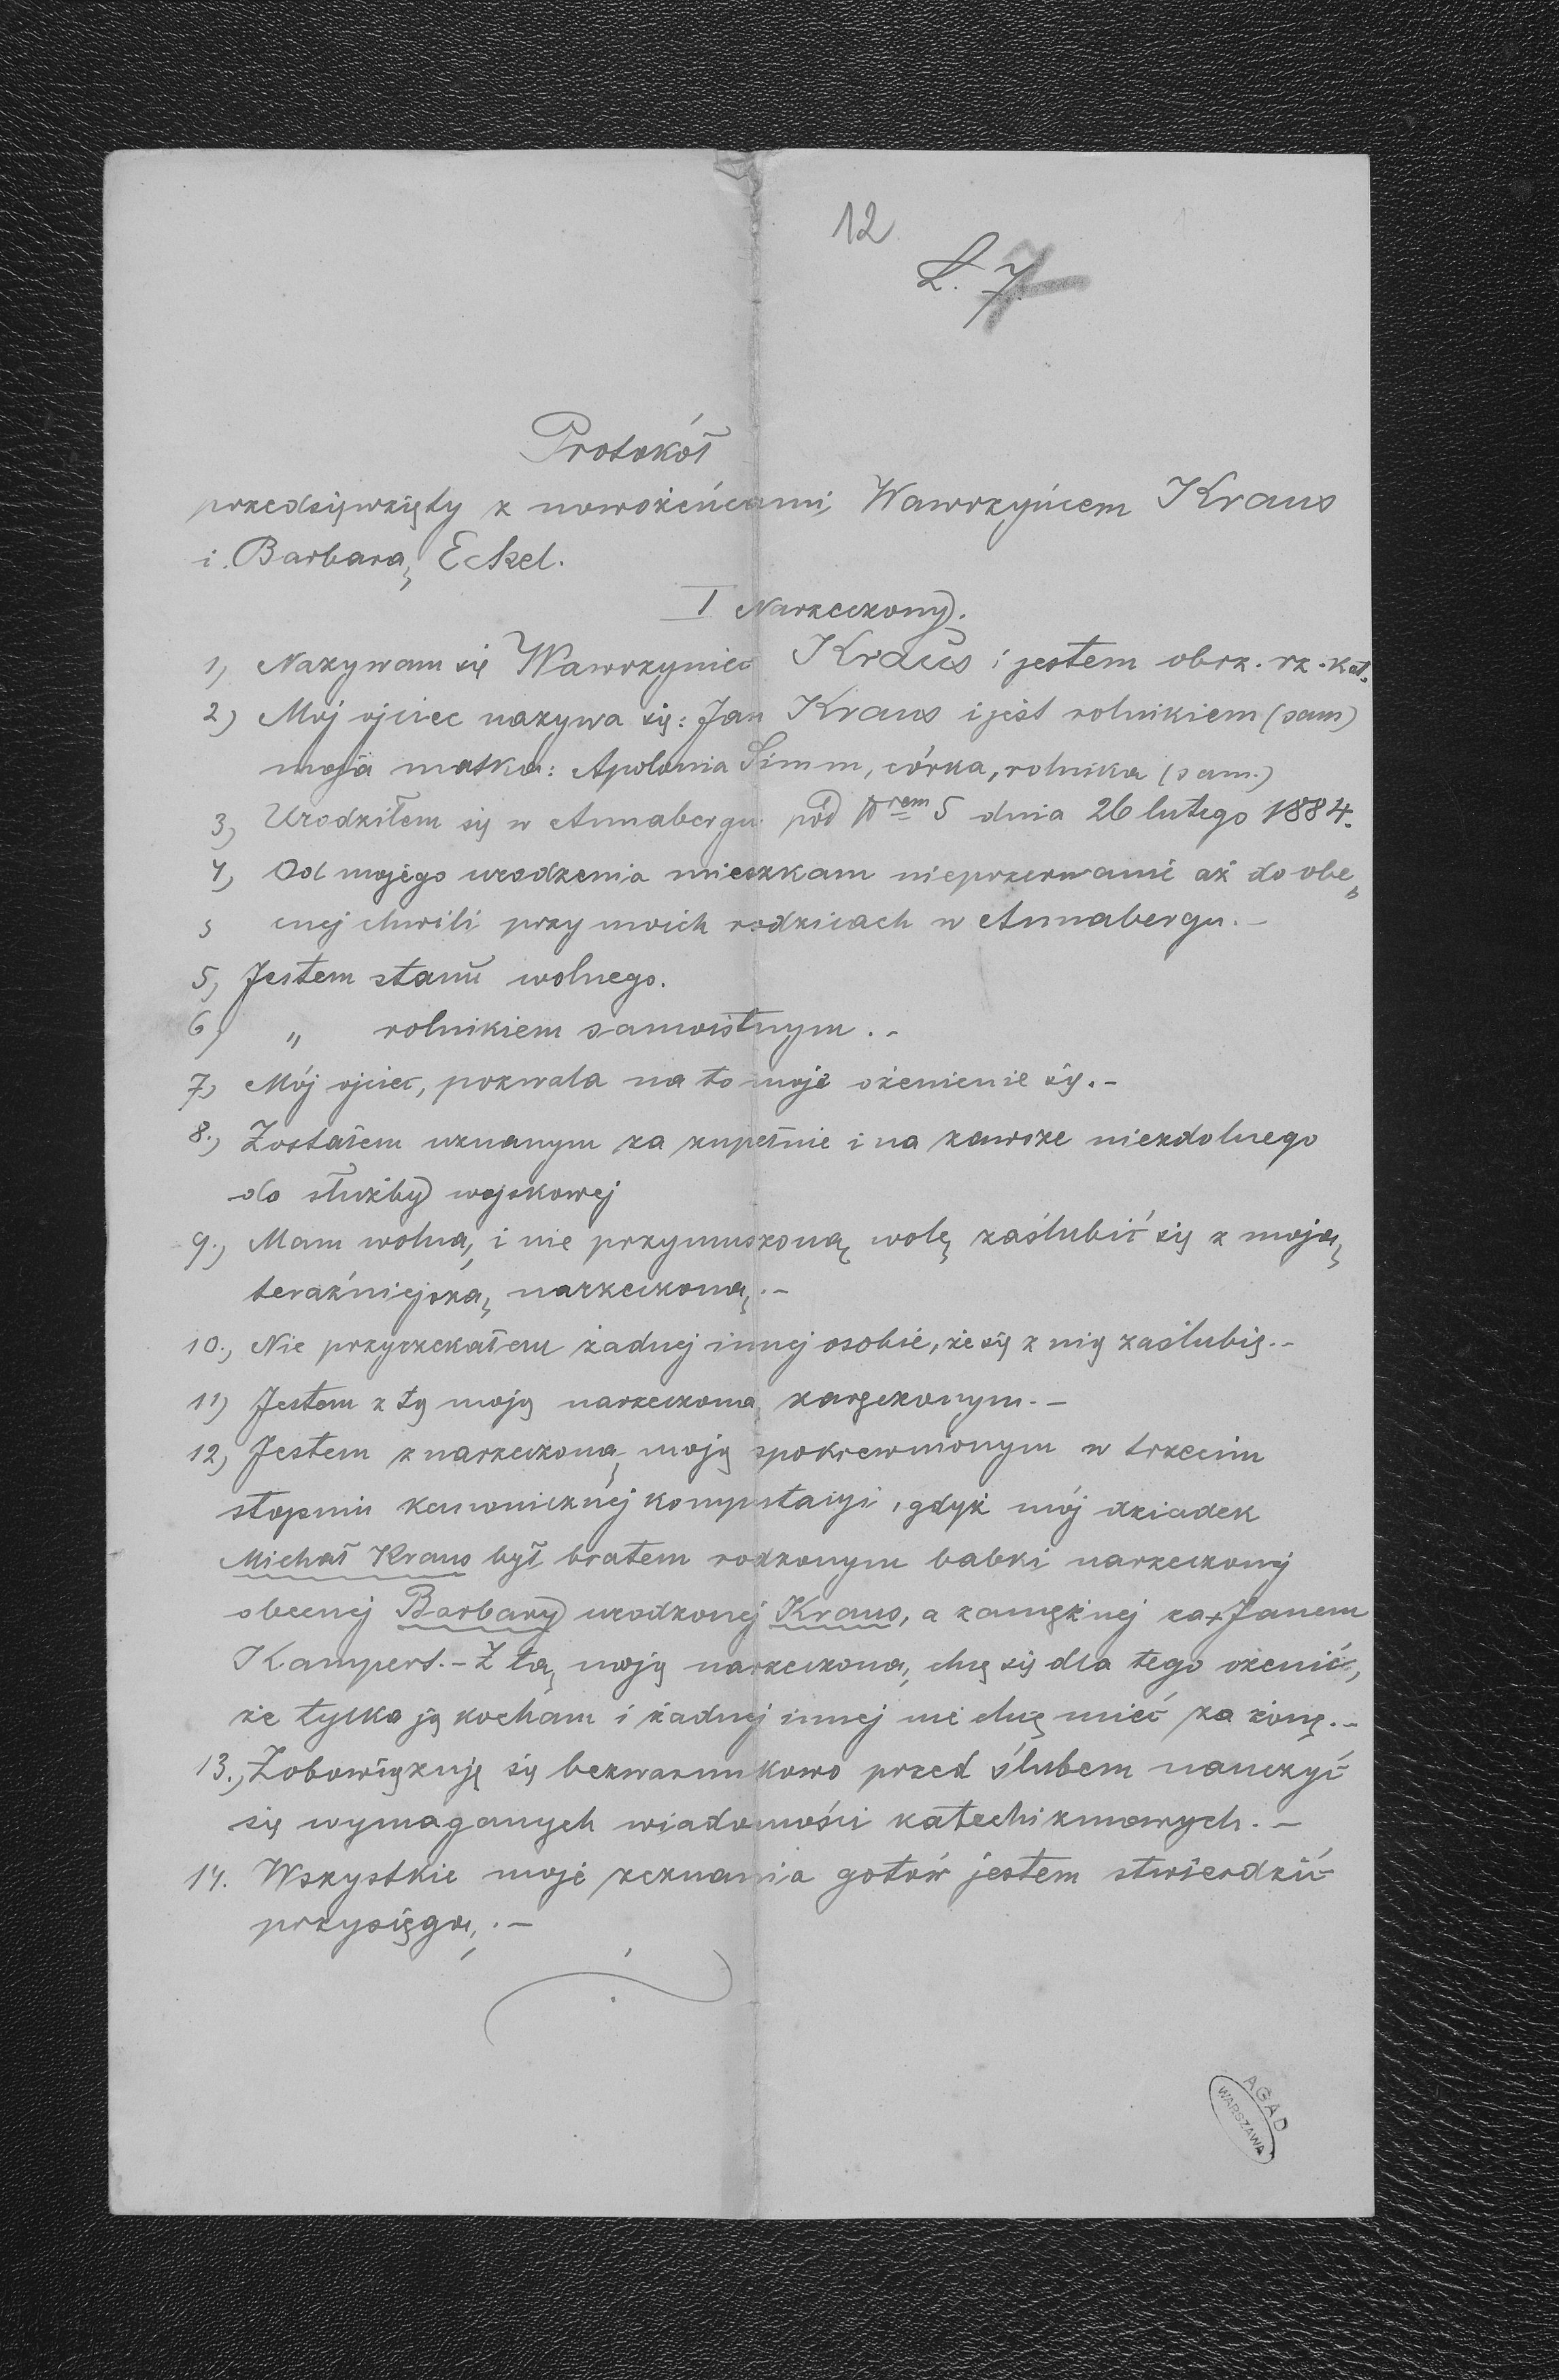 12
L. 7
Protokół
przedsięwzięty z nowożeńcami, Wawrzyńcem Kraus
i. Barbarą Eckel.
I Narzeczony.
1, Nazywam się Wawrzyniec Kraus i jestem obrz. rz.-kat.
2) Mój ojciec nazywa się: Jan Kraus i jest rolnikiem (sam)
moja matka: Apolonia Simm, córka, rolnika (sam.)
3, Urodziłem się w Annabergu pod Nrem 5 dnia 26 lutego 1884.
4, Od mojego urodzenia mieszkam nieprzerwanie aż do obe„
cnej chwili przy moich rodzicach w Annabergu. –
5, Jestem stanu wolnego.
6, „ rolnikiem samoistnym. –
7, Mój ojciec, pozwala na to moje ożenienie się. –
8., Zostałem uznanym za zupełnie i na zawsze niezdolnego
do służby wojskowej
9., Mam wolną, i nie przymuszoną wolę zaślubić się z moją
teraźniejszą narzeczoną. –
10., Nie przyrzekałem żadnej innej osobie, że się z nią zaślubię. –
11) Jestem z tą moją narzeczoną zaręczonym. –
12) Jestem z narzeczoną moją spokrewnionym w trzecim
stopniu kanonicznej komputacyi, gdyż mój dziadek
Michał Kraus był bratem rodzonym babki narzeczonej
obecnej Barbary urodzonej Kraus, a zamężnej za + Janem
Kampert. – Z tą moją narzeczoną, chcę się dla tego ożenić,
że tylko ją kocham i żadnej innej nie chcę mieć za żonę. –
13., Zobowiązuję się bezwarunkowo przed ślubem nauczyć
się wymaganych wiadomości katechizmowych. –
14. Wszystkie moje zeznania gotów jestem stwierdzić
przysięgą. –
AGAD
WARSZAWA